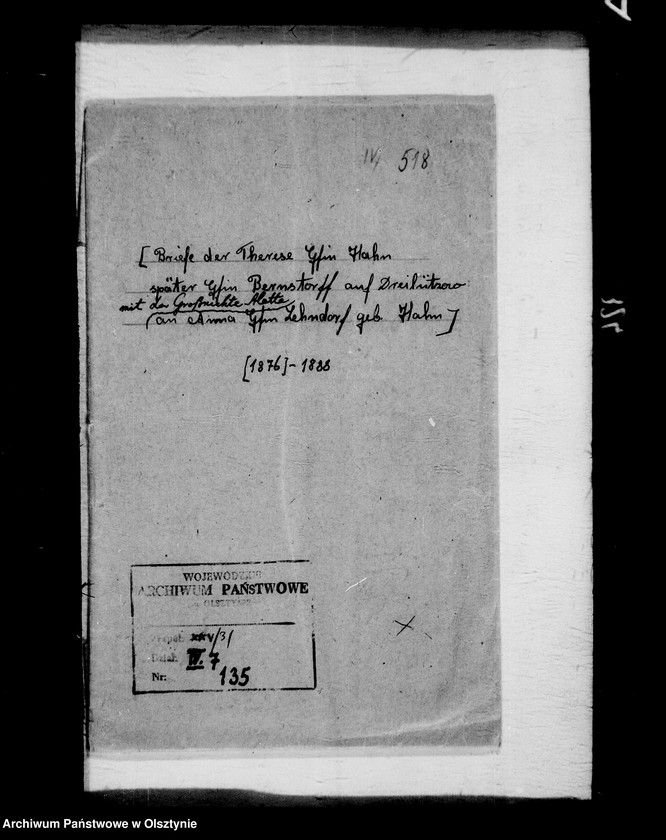 IV, 518
[ Briefe der Therese Gfin Hahn
später Gfin Bernstorff auf Dreilützow
mit der Großnichte Alette
an Anna Gfin Lehndorf geb. Hahn ]
[1876] - 1888
WOJEWÓDZKIE
ARCHIWUM PAŃSTWOWE
w OLSZTYNIE
Zespół: XXV/3/
Dział: IV. 7
Nr: 135
Archiwum Państwowe w Olsztynie